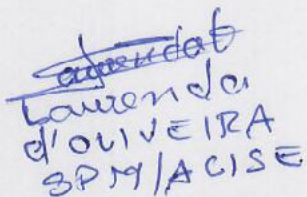 Laurenda
d'OLIVEIRA
SPM/ACISE